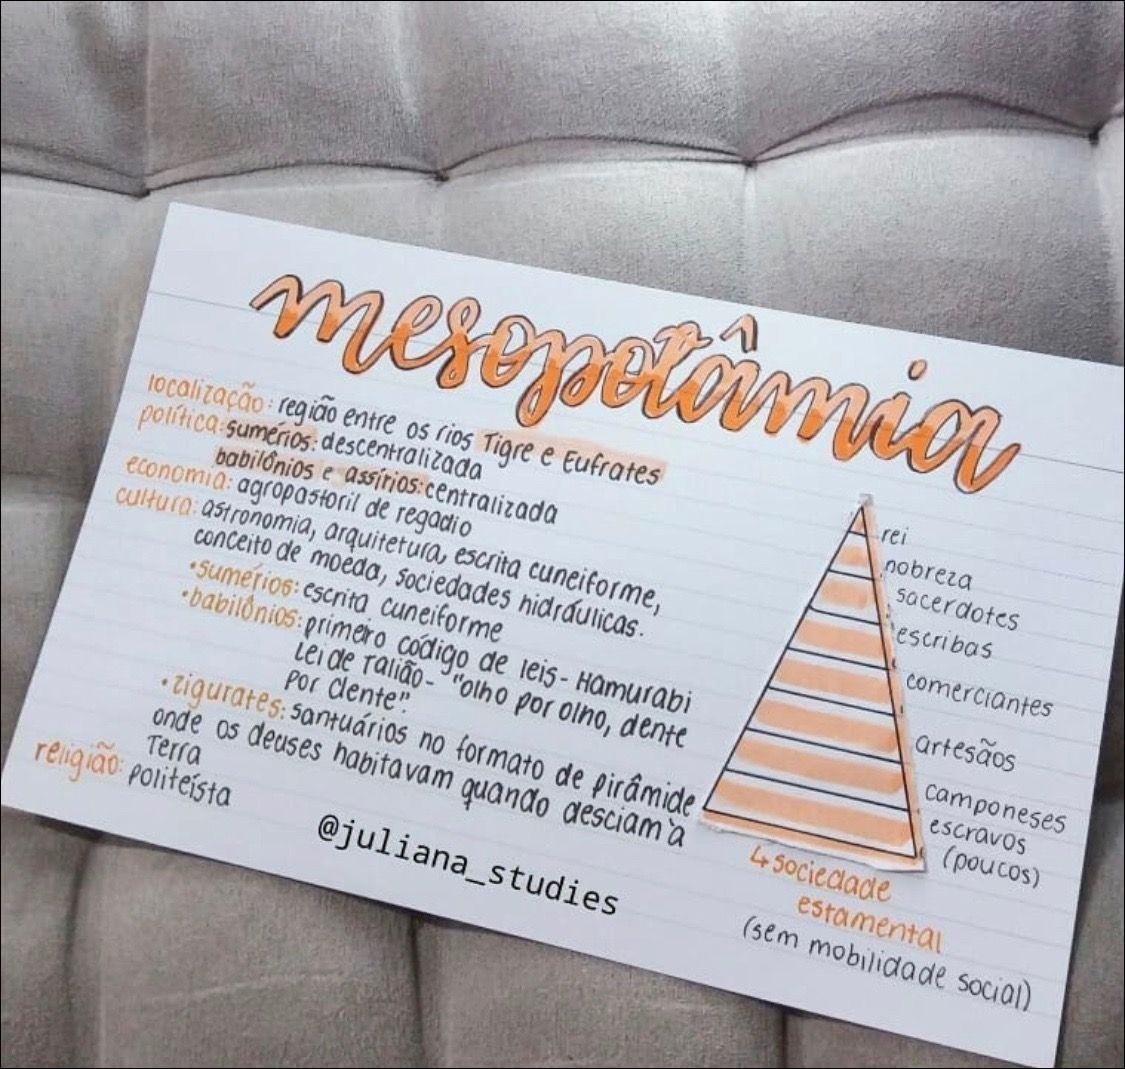 mesopotâmia
localização: região entre os rios Tigre e Eufrates
política: sumérios: descentralizada
babilônios e assírios: centralizada
economia: agropastoril de regadio
cultura: astronomia, arquitetura, escrita cuneiforme,
conceito de moeda, sociedades hidráulicas.
•sumérios: escrita cuneiforme
•babilônios: primeiro código de leis - Hamurabi
Lei de Talião - "olho por olho, dente
por dente".
•zigurates: santuários no formato de pirâmide
onde os deuses habitavam quando desciam à
Terra
religião: politeísta
@juliana_studies
rei
nobreza
sacerdotes
escribas
comerciantes
artesãos
camponeses
escravos
(poucos)
↳ sociedade
estamental
(sem mobilidade social)